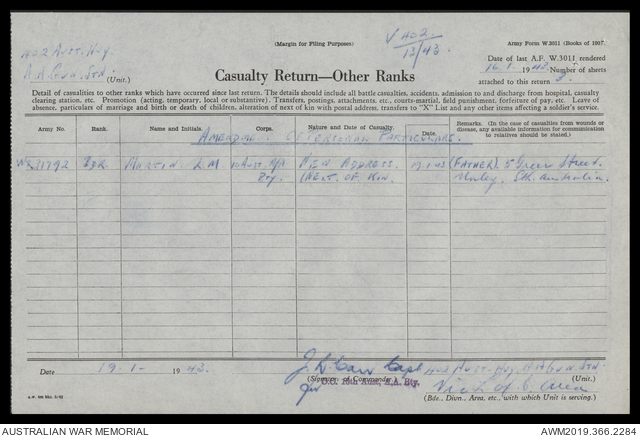 (Margin for Filing Purposes)
V 402
13/43.
Army Form W.3011 (Books of 100).
402 Aust. Hvy.
A A Gun. Stn.
(Unit.)
Date of last A.F. W.3011 rendered
16. 1. 1943. Number of sheets
attached to this return
Casualty Return—Other Ranks
Detail of casualties to other ranks which have occurred since last return. The details should include all battle casualties, accidents, admission to and discharge from hospital, casualty
clearing station, etc. Promotion (acting, temporary, local or substantive). Transfers, postings, attachments, etc., courts-martial, field punishment, forfeiture of pay, etc. Leave of
absence, particulars of marriage and birth or death of children, alteration of next of kin with postal address, transfers to "X" List and any other items affecting a soldier's service.
Army No.
Rank.
Name and Initials.
Corps.
Nature and Date of Casualty.
Date.
Remarks. (In the case of casualties from wounds or disease, any available information for communication to relatives should be stated.)
Personal Particulars.
Martin L M
Aust. New Address. (Father) 5 Street
Bty. (Next of Kin. Unley, Sth. Australia.
Date 19 - 1 - 1943.
Capt 402 Aust. Hvy. A A Gun Stn
(Signature of Commander.)
(Unit.)
Vic L of C Area
(Bde., Divn., Area, etc., with which Unit is serving.)
AUSTRALIAN WAR MEMORIAL
AWM2019.366.2284